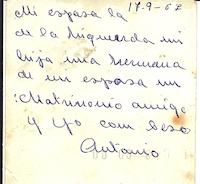 17-9-67
Mi esposa la
de la Izquierda mi
hija una hermana
de mi esposa un
Matrimonio amigo
y yo con beso
Antonio